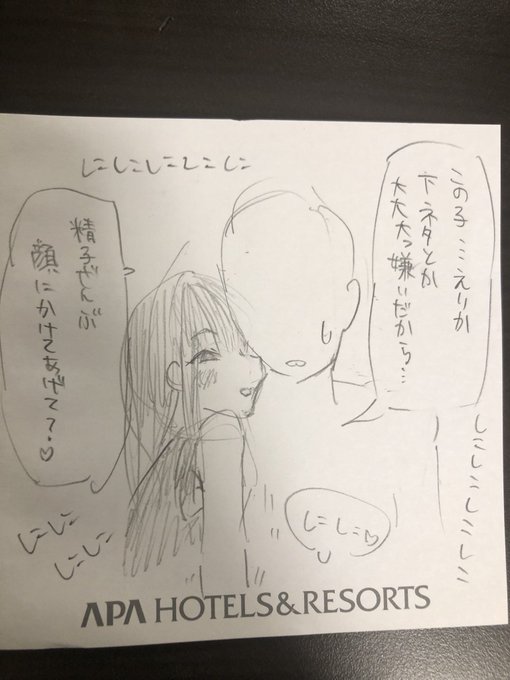 この子…えりか
下ネタとか
大大大っ嫌いだから…
しこしこしこしこ
精子ぜんぶ
顔にかけてあげて？♡
しこしこしこしこ
しこしこ♡
しこしこ
しこしこ
APA HOTELS&RESORTS